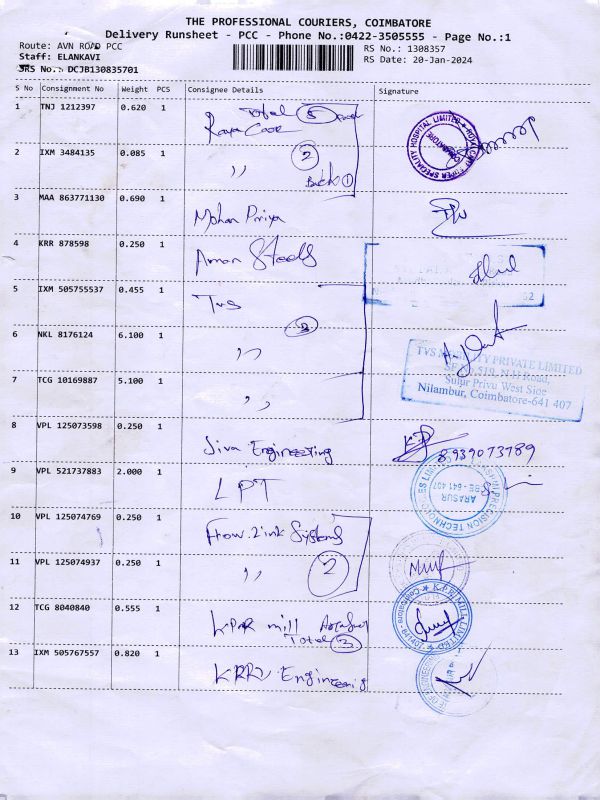 THE PROFESSIONAL COURIERS, COIMBATORE
Delivery Runsheet - PCC - Phone No.:0422-3505555 - Page No.:1
Route: AVN ROAD PCC
RS No.: 1308357
Staff: ELANKAVI
RS Date: 20-Jan-2024
JRS No.: DCJB130835701
S No Consignment No Weight PCS Consignee Details Signature
1 TNJ 1212397 0.620 1
Total 5
2 IXM 3484135 0.085 1 ,, 2
3 MAA 863771130 0.690 1
Mohan Priya
4 KRR 878598 0.250 1
Aman Steels
5 IXM 505755537 0.455 1
Tvs
6 NKL 8176124 6.100 1 ,,
7 TCG 10169887 5.100 1 ,,
TVS PRIVATE LIMITED
Road,
Sulur Privu West Side
Nilambur, Coimbatore-641 407
8 VPL 125073598 0.250 1
Siva Engineering
8939073789
9 VPL 521737883 2.000 1
LPT
10 VPL 125074769 0.250 1
Flow Link Systems
11 VPL 125074937 0.250 1 ,, 2
12 TCG 8040840 0.555 1
KPR mill
Total 3
KPR MILL LIMITED
13 IXM 505767557 0.820 1
Engineering